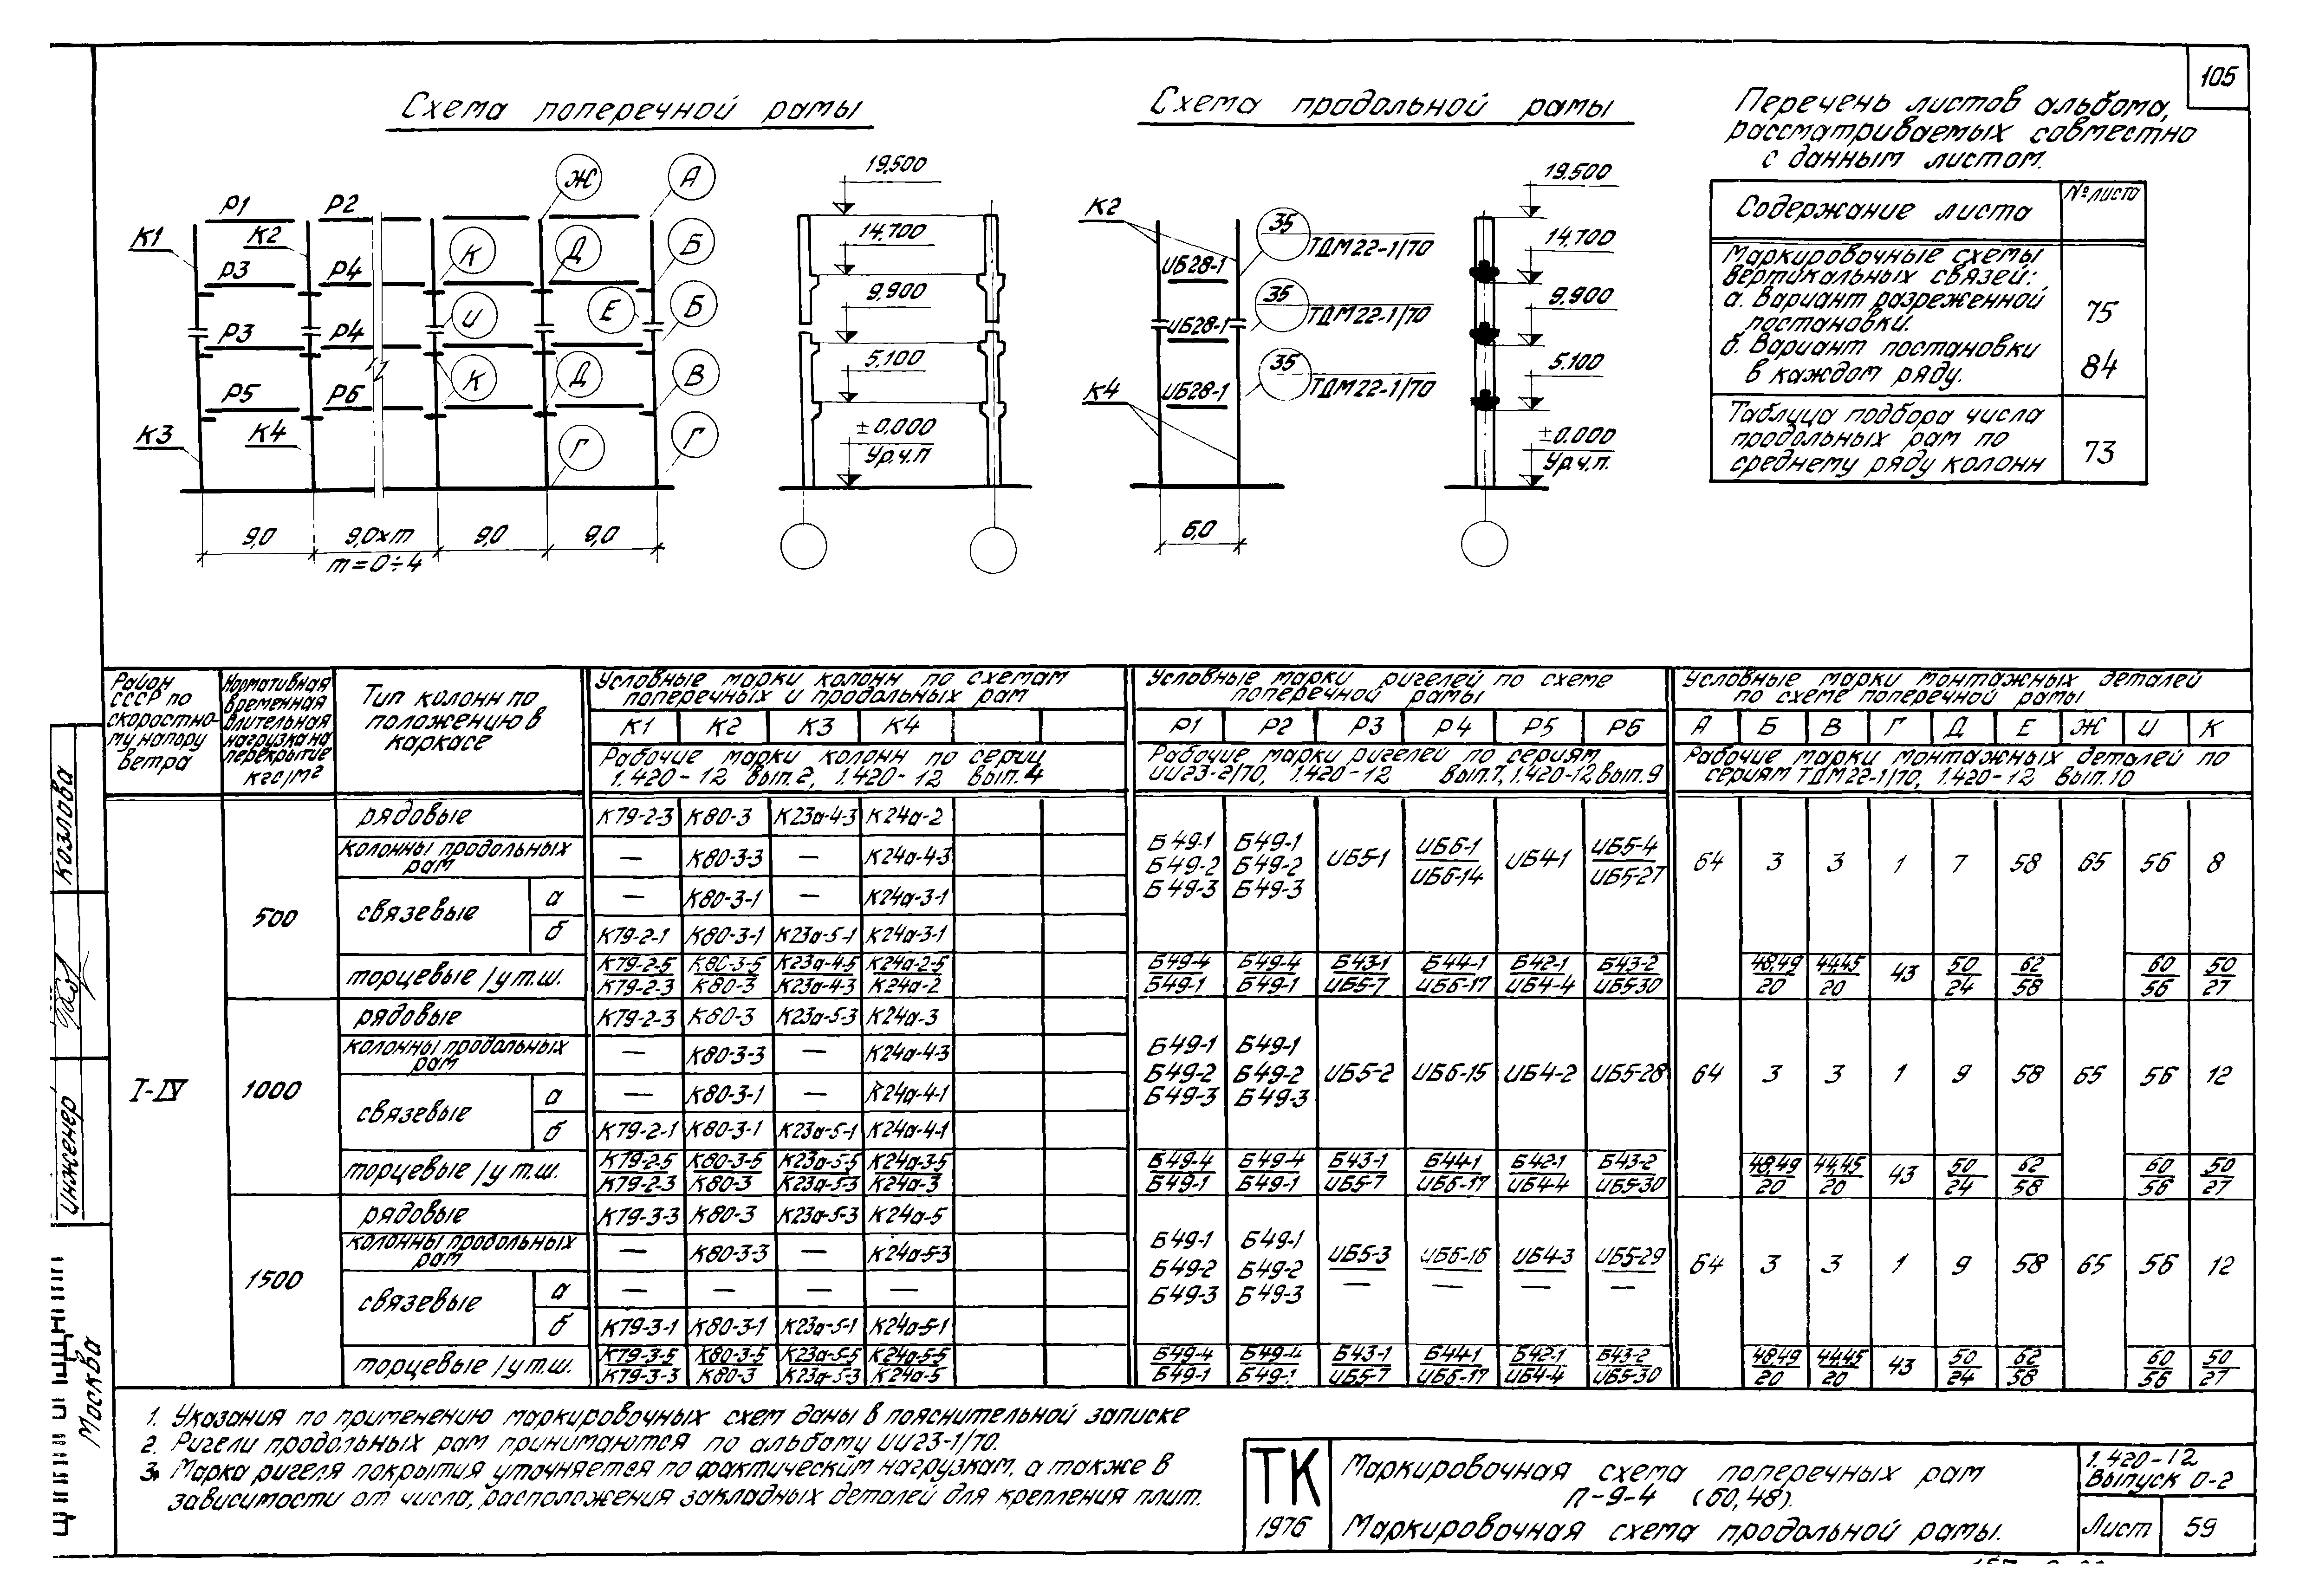 105
Схема поперечной рамы
Схема продольной рамы
Перечень листов альбома,
рассматриваемых совместно
с данным листом.
Содержание листа
№ листа
Маркировочные схемы
вертикальных связей:
а. Вариант разреженной
постановки.
75
б. Вариант постановки
в каждом ряду.
84
Таблица подбора числа
продольных рам по
среднему ряду колонн
73
Р1 Р2 Ж А
К1 К2 К Д Б
Р3 Р4
И Е Б
Р3 Р4
К Д В
Р5 Р6
К3 К4 Г Г
9,0 9,0хm 9,0 9,0
m=0÷4
19,500
14,700
9,900
5,100
±0,000
Ур.ч.п
К2 35 ТДМ22-1/70
ИБ28-1
35 ТДМ22-1/70
ИБ28-1
35 ТДМ22-1/70
К4 ИБ28-1
6,0
19,500
14,700
9,900
5,100
±0,000
Ур.ч.п.
Район СССР по скоростному напору ветра
Нормативная временная длительная нагрузка на перекрытие кгс/м²
Тип колонн по положению в каркасе
Условные марки колонн по схемам поперечных и продольных рам
Условные марки ригелей по схеме поперечной рамы
Условные марки монтажных деталей по схеме поперечной рамы
К1 К2 К3 К4 Р1 Р2 Р3 Р4 Р5 Р6 А Б В Г Д Е Ж И К
Рабочие марки колонн по серии 1.420-12 вып.2, 1.420-12 вып.4
Рабочие марки ригелей по сериям ИИ23-2/70, 1.420-12 вып.7, 1.420-12 вып.9
Рабочие марки монтажных деталей по сериям ТДМ22-1/70, 1.420-12 вып.10
I-IV
500
рядовые К79-2-3 К80-3 К23а-4-3 К24а-2
колонны продольных рам — К80-3-3 — К24а-4-3
связевые а — К80-3-1 — К24а-3-1
б К79-2-1 К80-3-1 К23а-5-1 К24а-3-1
Б49-1 Б49-1
Б49-2 Б49-2 ИБ5-1 ИБ6-1/ИБ6-14 ИБ4-1 ИБ5-4/ИБ5-27 64 3 3 1 7 58 65 56 8
Б49-3 Б49-3
торцевые/у т.ш. К79-2-5 К80-3-5 К23а-4-5 К24а-2-5 Б49-4 Б49-4 Б43-1 Б44-1 Б42-1 Б43-2 48,49 44,45 43 50 62 60 50
К79-2-3 К80-3 К23а-4-3 К24а-2 Б49-1 Б49-1 ИБ5-7 ИБ6-17 ИБ4-4 ИБ5-30 20 20 24 58 56 27
1000
рядовые К79-2-3 К80-3 К23а-5-3 К24а-3
колонны продольных рам — К80-3-3 — К24а-4-3
связевые а — К80-3-1 — К24а-4-1
б К79-2-1 К80-3-1 К23а-5-1 К24а-4-1
Б49-1 Б49-1
Б49-2 Б49-2 ИБ5-2 ИБ6-15 ИБ4-2 ИБ5-28 64 3 3 1 9 58 65 56 12
Б49-3 Б49-3
торцевые/у т.ш. К79-2-5 К80-3-5 К23а-5-5 К24а-3-5 Б49-4 Б49-4 Б43-1 Б44-1 Б42-1 Б43-2 48,49 44,45 43 50 62 60 50
К79-2-3 К80-3 К23а-5-3 К24а-3 Б49-1 Б49-1 ИБ5-7 ИБ6-17 ИБ4-4 ИБ5-30 20 20 24 58 56 27
1500
рядовые К79-3-3 К80-3 К23а-5-3 К24а-5
колонны продольных рам — К80-3-3 — К24а-5-3
связевые а — — — —
б К79-3-1 К80-3-1 К23а-5-1 К24а-5-1
Б49-1 Б49-1
Б49-2 Б49-2 ИБ5-3 ИБ6-16 ИБ4-3 ИБ5-29 64 3 3 1 9 58 65 56 12
Б49-3 Б49-3 — — — —
торцевые/у т.ш. К79-3-5 К80-3-5 К23а-5-5 К24а-5-5 Б49-4 Б49-4 Б43-1 Б44-1 Б42-1 Б43-2 48,49 44,45 43 50 62 60 50
К79-3-3 К80-3 К23а-5-3 К24а-5 Б49-1 Б49-1 ИБ5-7 ИБ6-17 ИБ4-4 ИБ5-30 20 20 24 58 56 27
1. Указания по применению маркировочных схем даны в пояснительной записке
2. Ригели продольных рам принимаются по альбому ИИ23-1/70.
3. Марка ригеля покрытия уточняется по фактическим нагрузкам, а также в
зависимости от числа, расположения закладных деталей для крепления плит.
ТК
1976
Маркировочная схема поперечных рам
П-9-4 (60,48).
Маркировочная схема продольной рамы.
1.420-12
Выпуск 0-2
Лист 59
Козлова
Инженер
Москва